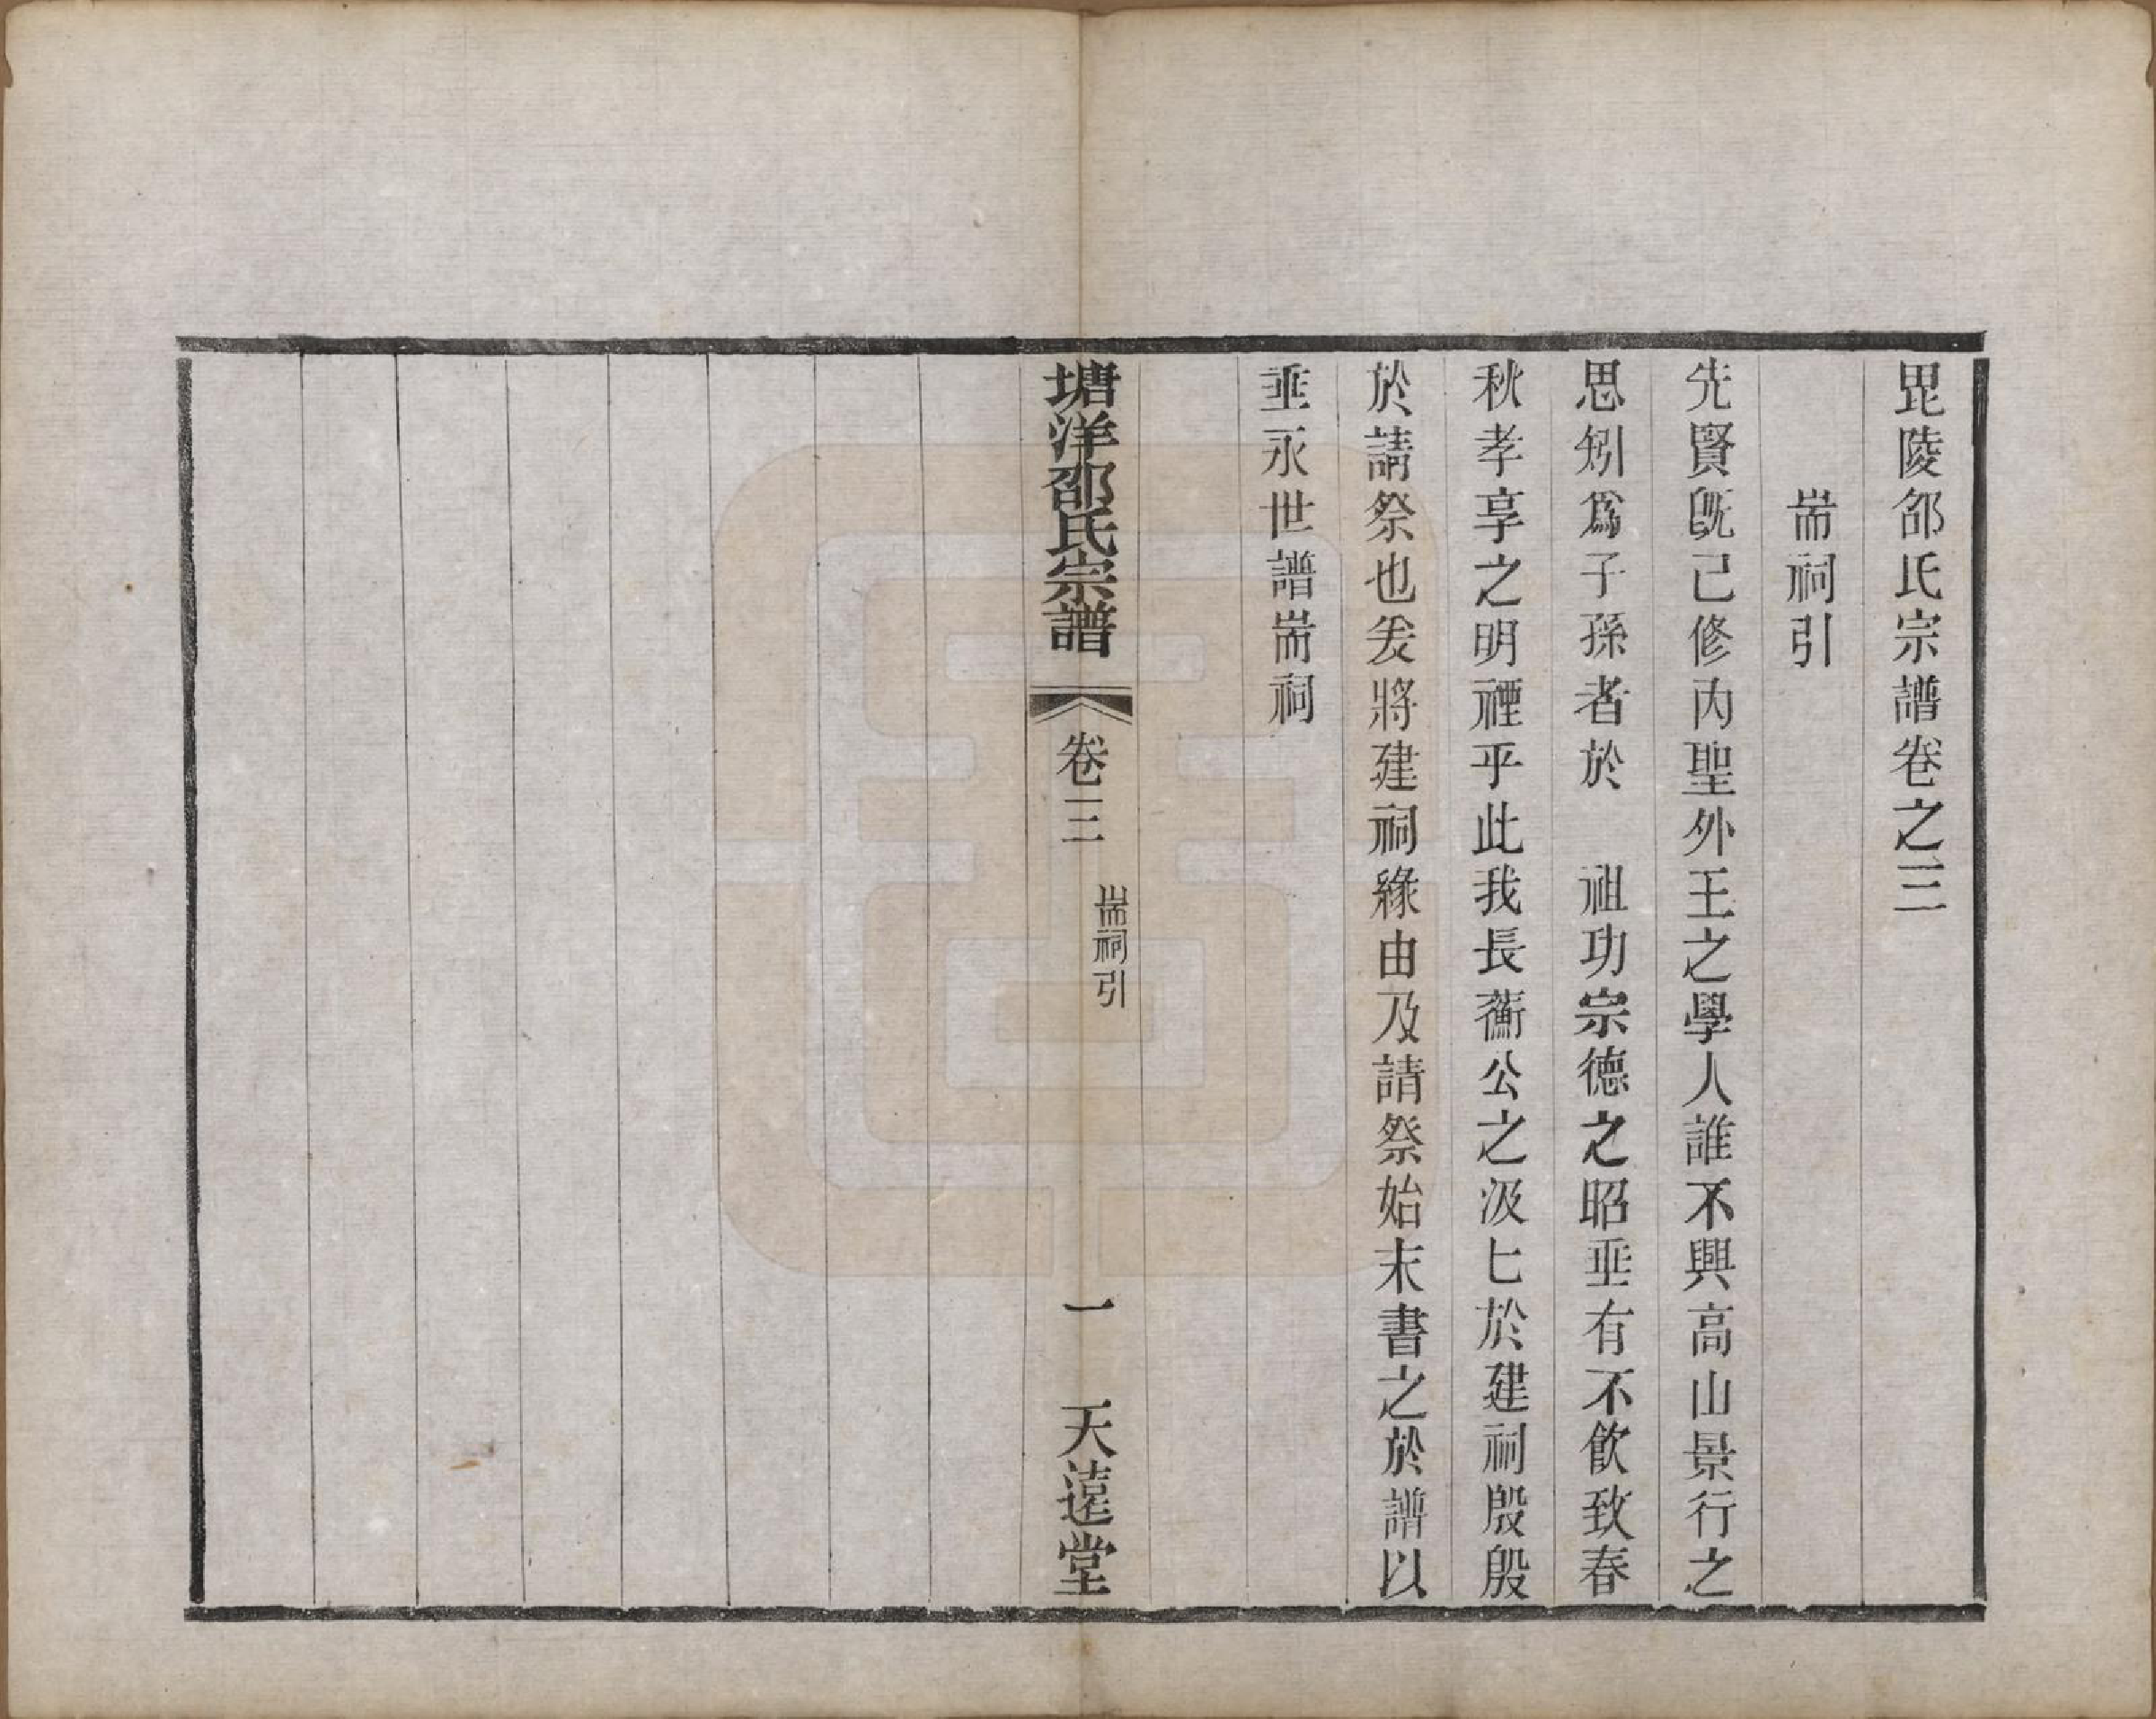 毘陵邵氏宗譜卷之三
耑祠引
先賢旣己修內聖外王之學人誰不興高山景行之
思矧爲子孫者於　祖功宗德之昭垂有不飲致春
秋孝享之明禋乎此我長蘅公之汲匕於建祠殷殷
於請祭也爰將建祠緣由及請祭始末書之於譜以
垂永世譜耑祠
塘洋邵氏宗譜
卷三
耑祠引
一
天遠堂